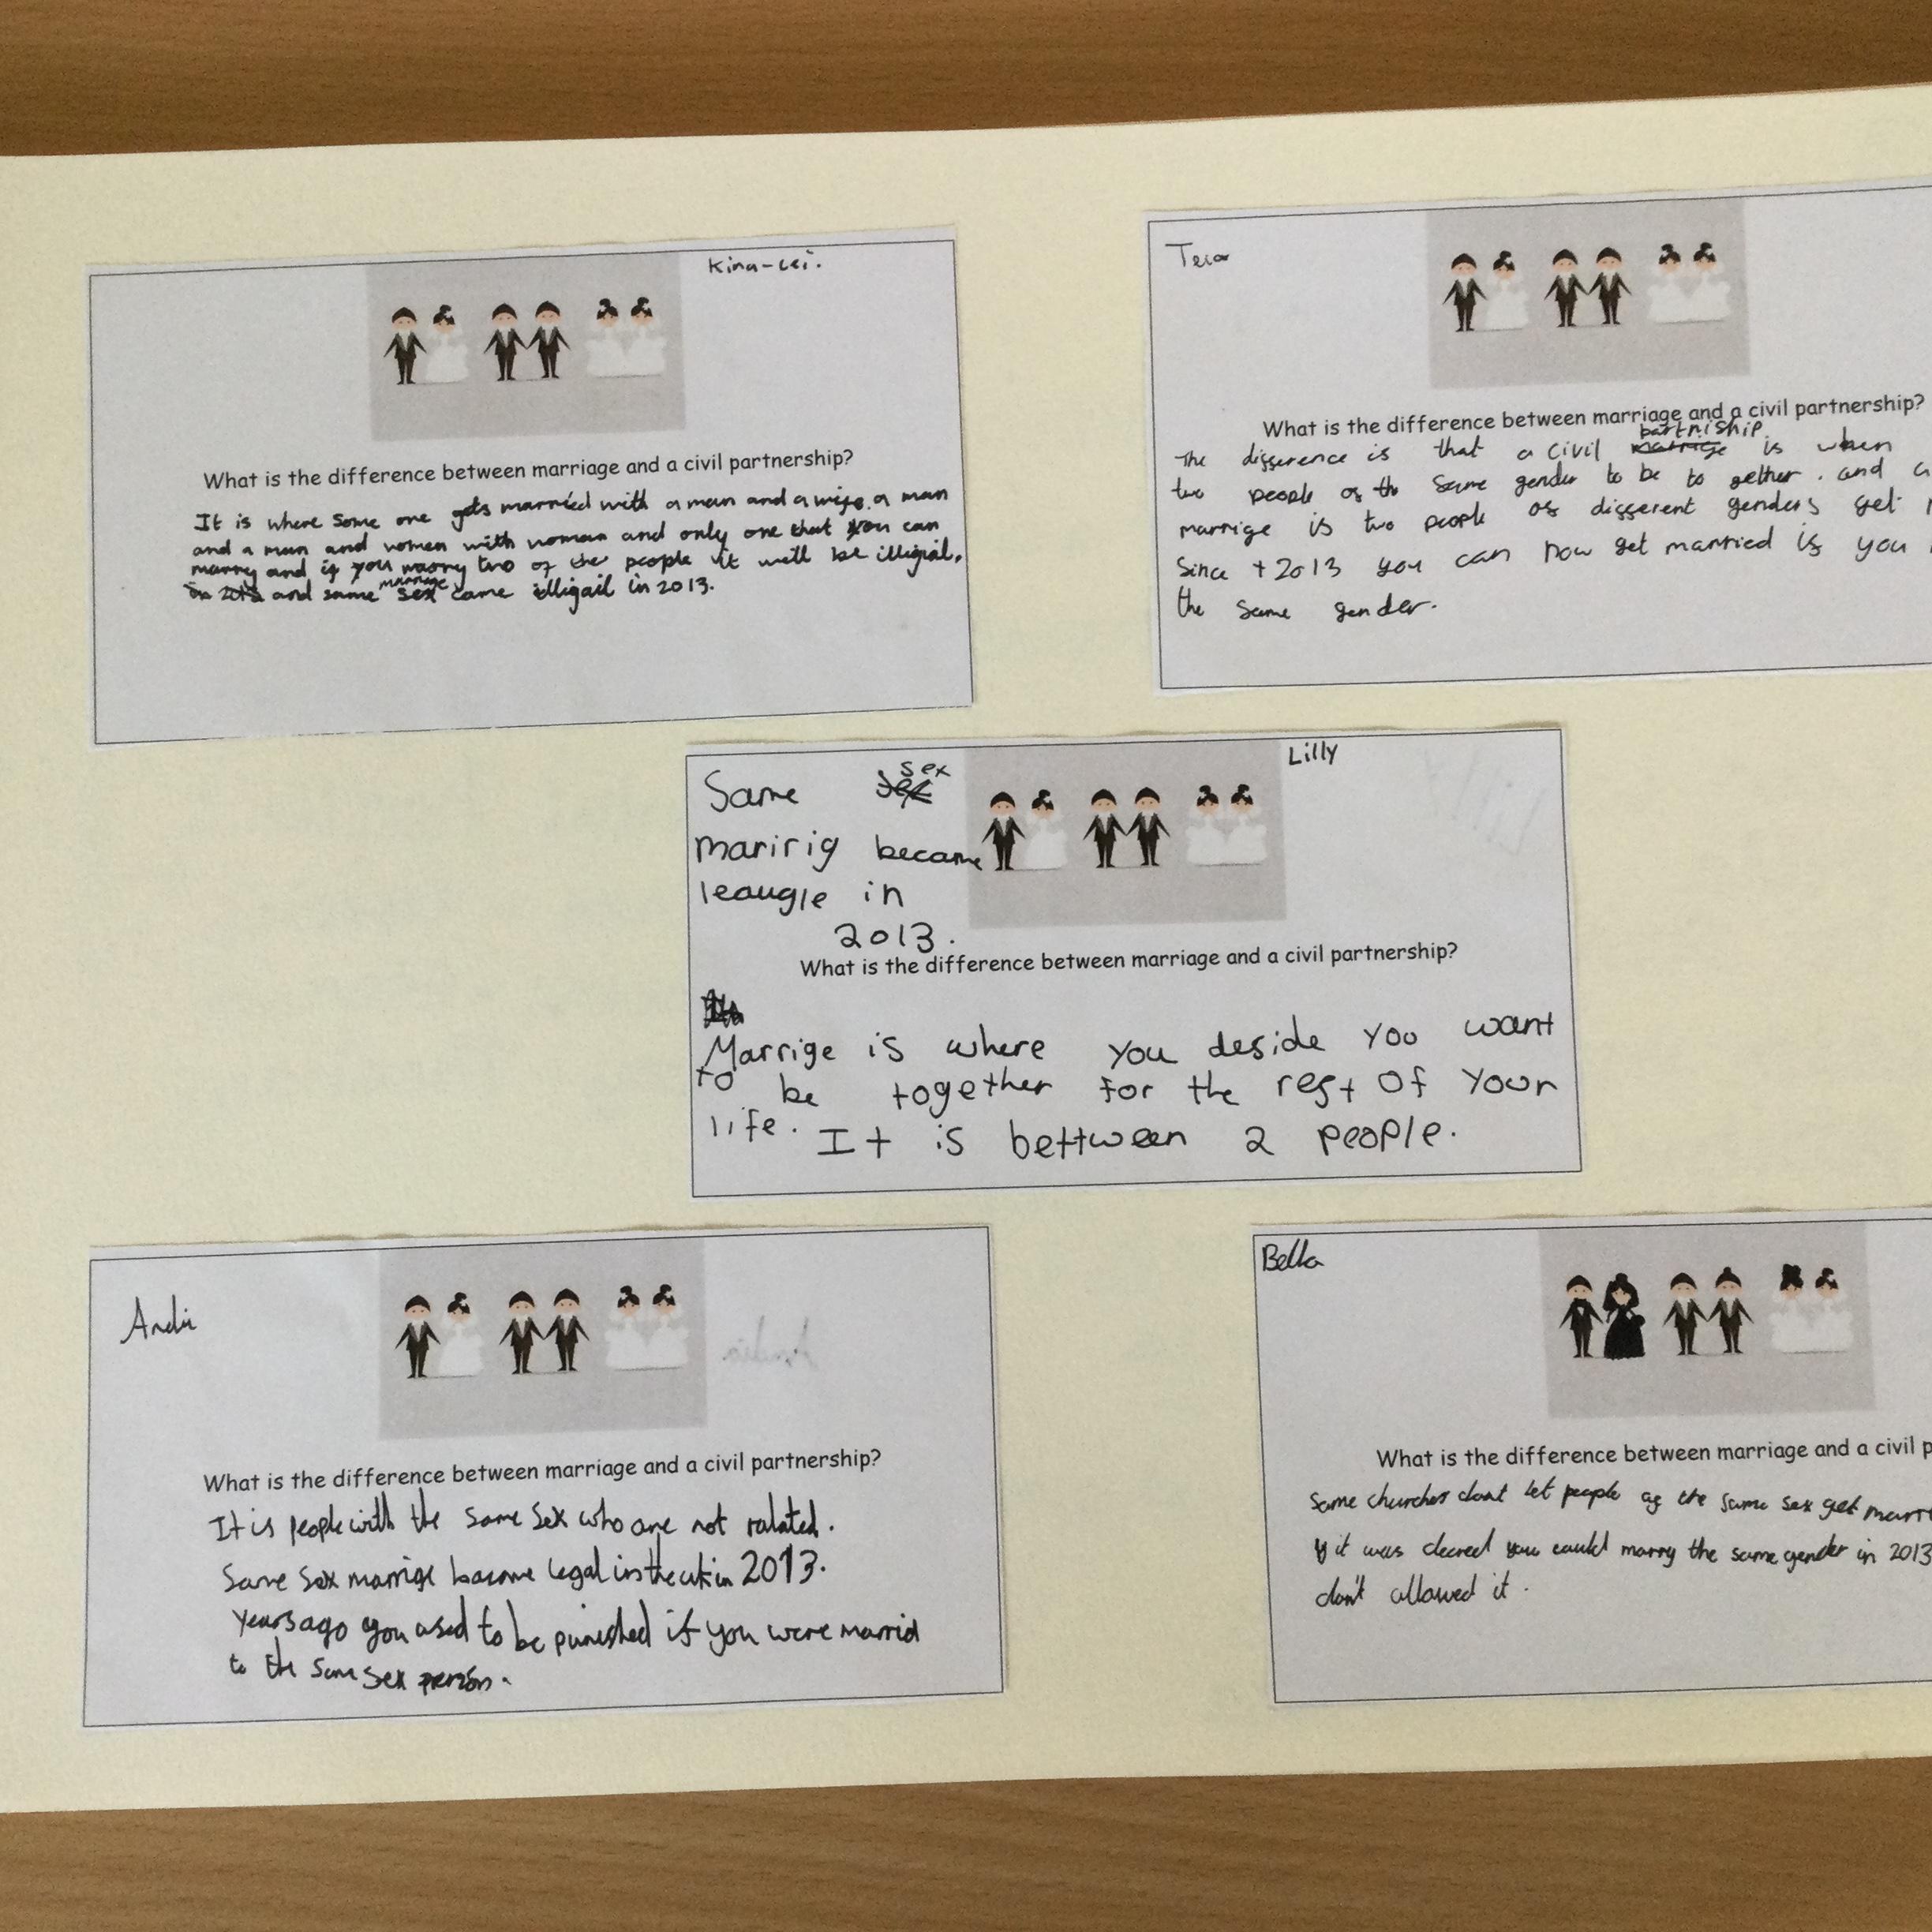 Kina-Lei.
What is the difference between marriage and a civil partnership?
It is where some one gets married with a man and a wife. a man
and a man and women with woman and only one that you can
marry and if you marry two of the people it will be illigial.
and same marriage sex came illigail in 2013.
What is the difference between marriage and a civil partnership?
The difference is that a civil partniship is when
two people of the same gender to be to gether. and
marrige is two people of different genders get
Since 2013 you can now get married if you
the same gender.
Lilly
Same sex
maririg became
leaugle in
2013.
What is the difference between marriage and a civil partnership?
Marrige is where you deside you want
to be together for the rest of your
life. It is bettween 2 people.
What is the difference between marriage and a civil partnership?
It is people with the same sex who are not ralated.
Same sex marrige became legal in the uk in 2013.
Years ago you used to be punished if you were marrid
to the same sex person.
Bella
What is the difference between marriage and a civil
Some churches dont let people of the same sex get
it was you could marry the same gender in 2013
don't allowed it.